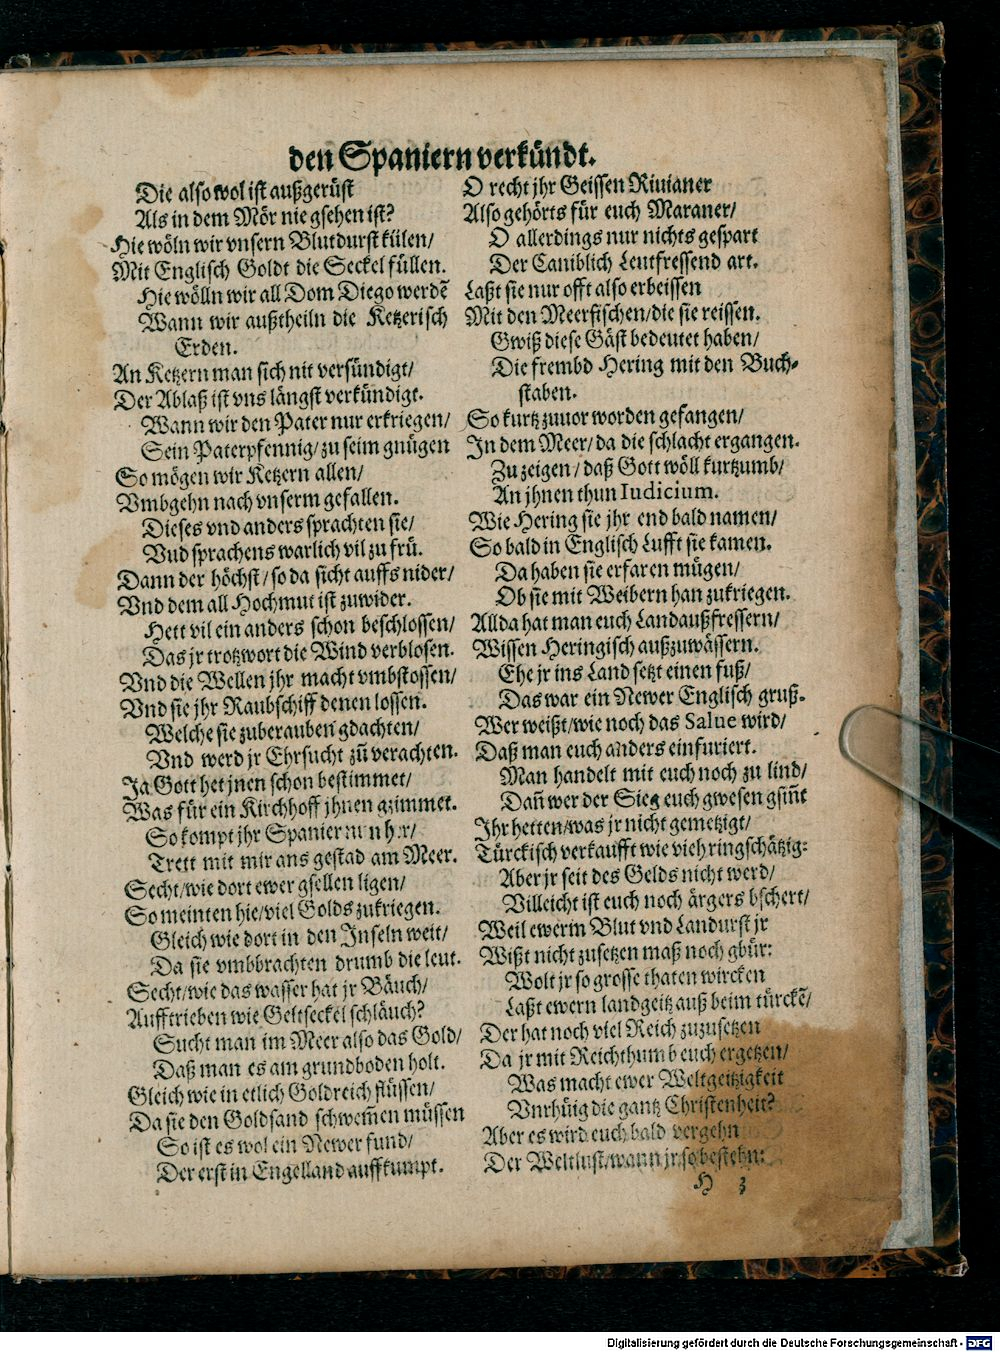 den Spaniern verkündt.
Die also wol ist außgerüst
Als in dem Mör nie gsehen ist?
Hie wöln wir vnsern Blutdurst külen/
Mit Englisch Goldt die Seckel füllen.
Hie wölln wir all Dom Diego werdẽ
Wann wir außtheiln die Ketzerisch
Erden.
An Ketzern man sich nit versündigt/
Der Ablaß ist vns längst verkündigt.
Wann wir den Pater nur erkriegen/
Sein Paterpfennig/zu seim gnügen
So mögen wir Ketzern allen/
Vmbgehn nach vnserm gefallen.
Dieses vnd anders sprachten sie/
Vud sprachens warlich vil zu frü.
Dann der höchst/so da sicht auffs nider/
Vnd dem all Hochmut ist zuwider.
Hett vil ein anders schon beschlossen/
Das jr trotzwort die Wind verblosen.
Vnd die Wellen jhr macht vmbstossen/
Vnd sie jhr Raubschiff denen lossen.
Welche sie zuberauben gdachten/
Vnd werd jr Ehrsucht zů verachten.
Ja Gott het jnen schon bestimmet/
Was für ein Kirchhoff jhnen gzimmet.
So kompt jhr Spanier nun her/
Trett mit mir ans gestad am Meer.
Secht/wie dort ewer gsellen ligen/
So meinten hie/viel Golds zukriegen.
Gleich wie dort in den Inseln weit/
Da sie vmbbrachten drumb die leut.
Secht/wie das wasser hat jr Bäuch/
Aufftrieben wie Geltseckel schläuch?
Sucht man im Meer also das Gold/
Daß man es am grundboden holt.
Gleich wie in etlich Goldreich flüssen/
Da sie den Goldsand schwem̃en müssen
So ist es wol ein Newer fund/
Der erst in Engelland auffkumpt.
O recht jhr Geissen Riuianer
Also gehörts für euch Maraner/
O allerdings nur nichts gespart
Der Caniblich Leutfressend art.
Laßt sie nur offt also erbeissen
Mit den Meerfischen/die sie reissen.
Gwiß diese Gäst bedeutet haben/
Die frembd Hering mit den Buch-
staben.
So kurtz zuuor worden gefangen/
In dem Meer/da die schlacht ergangen.
Zu zeigen/daß Gott wöll kurtzumb/
An jhnen thun Iudicium.
Wie Hering sie jhr end bald namen/
So bald in Englisch Lufft sie kamen.
Da haben sie erfaren mügen/
Ob sie mit Weibern han zukriegen.
Allda hat man euch Landaußfressern/
Wissen Heringisch außzuwässern.
Ehe jr ins Land setzt einen fuß/
Das war ein Newer Englisch gruß.
Wer weißt/wie noch das Salue wird/
Daß man euch anders einfuriert.
Man handelt mit euch noch zu lind/
Dañ wer der Sieg euch gwesen gsiñt
Ihr hetten/was jr nicht gemetzigt/
Türckisch verkaufft wie vieh ringschätzig:
Aber jr seit des Gelds nicht werd/
Villeicht ist euch noch ärgers bschert/
Weil ewerm Blut vnd Landurst jr
Wißt nicht zusetzen maß noch gbür:
Wolt jr so grosse thaten wircken
Laßt ewern landgeitz auß beim türckẽ/
Der hat noch viel Reich zuzusetzen
Da jr mit Reichthumb euch ergetzen/
Was macht ewer Weltgeitzigkeit
Vnrhüig die gantz Christenheit?
Aber es wird euch bald vergehn
Der Weltlust/wann jr so bestehn:
H 3
Digitalisierung gefördert durch die Deutsche Forschungsgemeinschaft - DFG